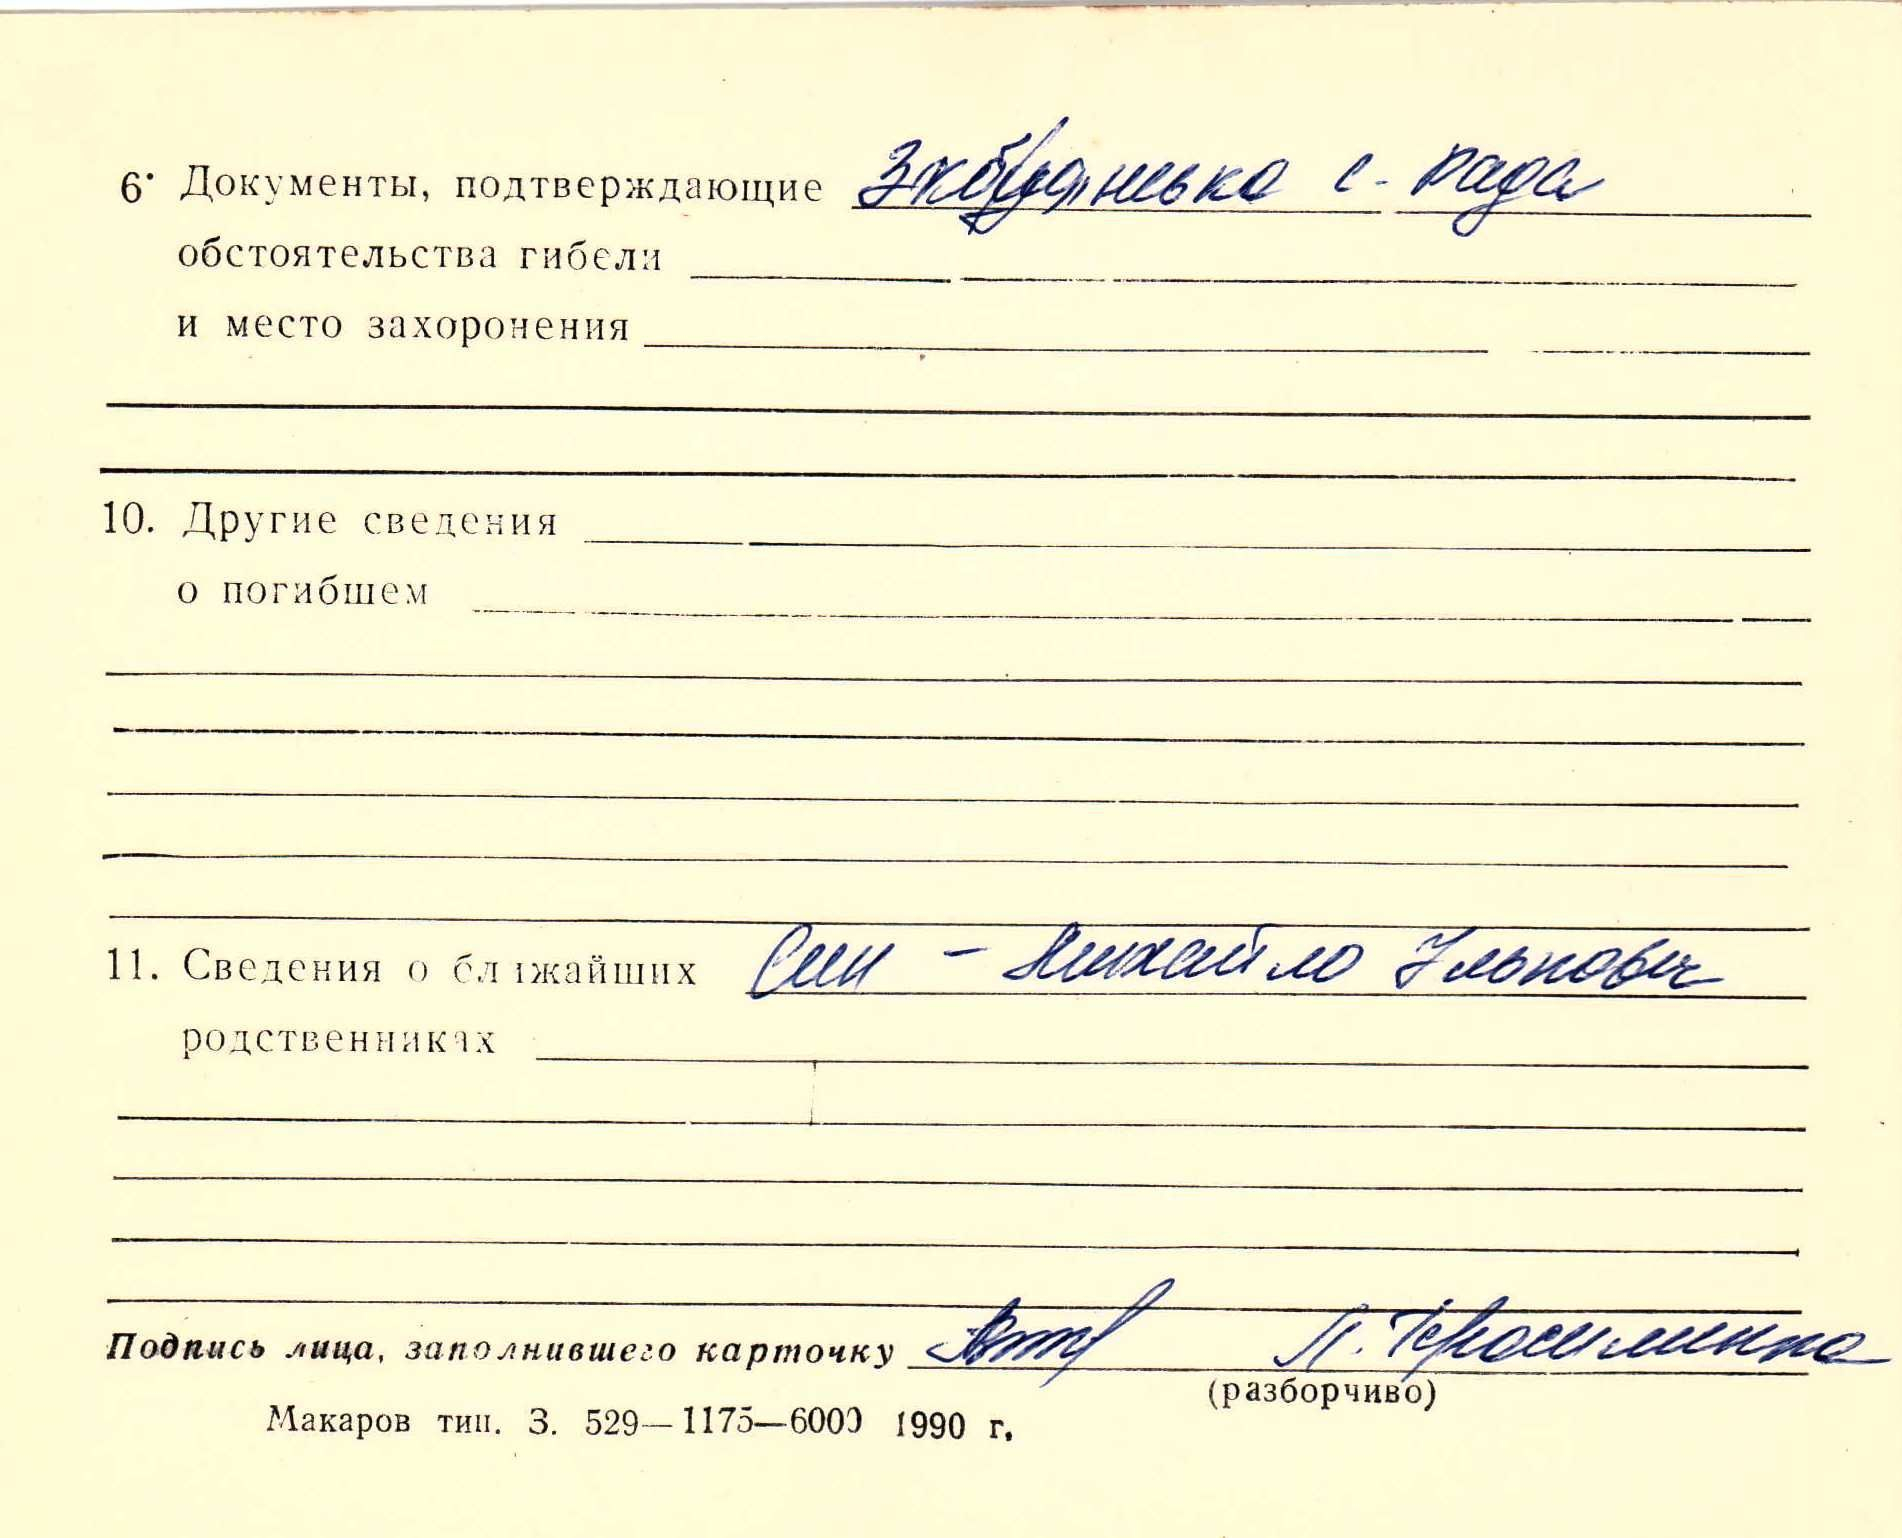 6. Документы, подтверждающие с. рада
обстоятельства гибели
и место захоронения
10. Другие сведения
о погибшем
11. Сведения о ближайших Син - Михайло Улькович
родственниках
Подпись лица, заполнившего карточку
(разборчиво)
Макаров тип. З. 529—1175—6000 1990 г.